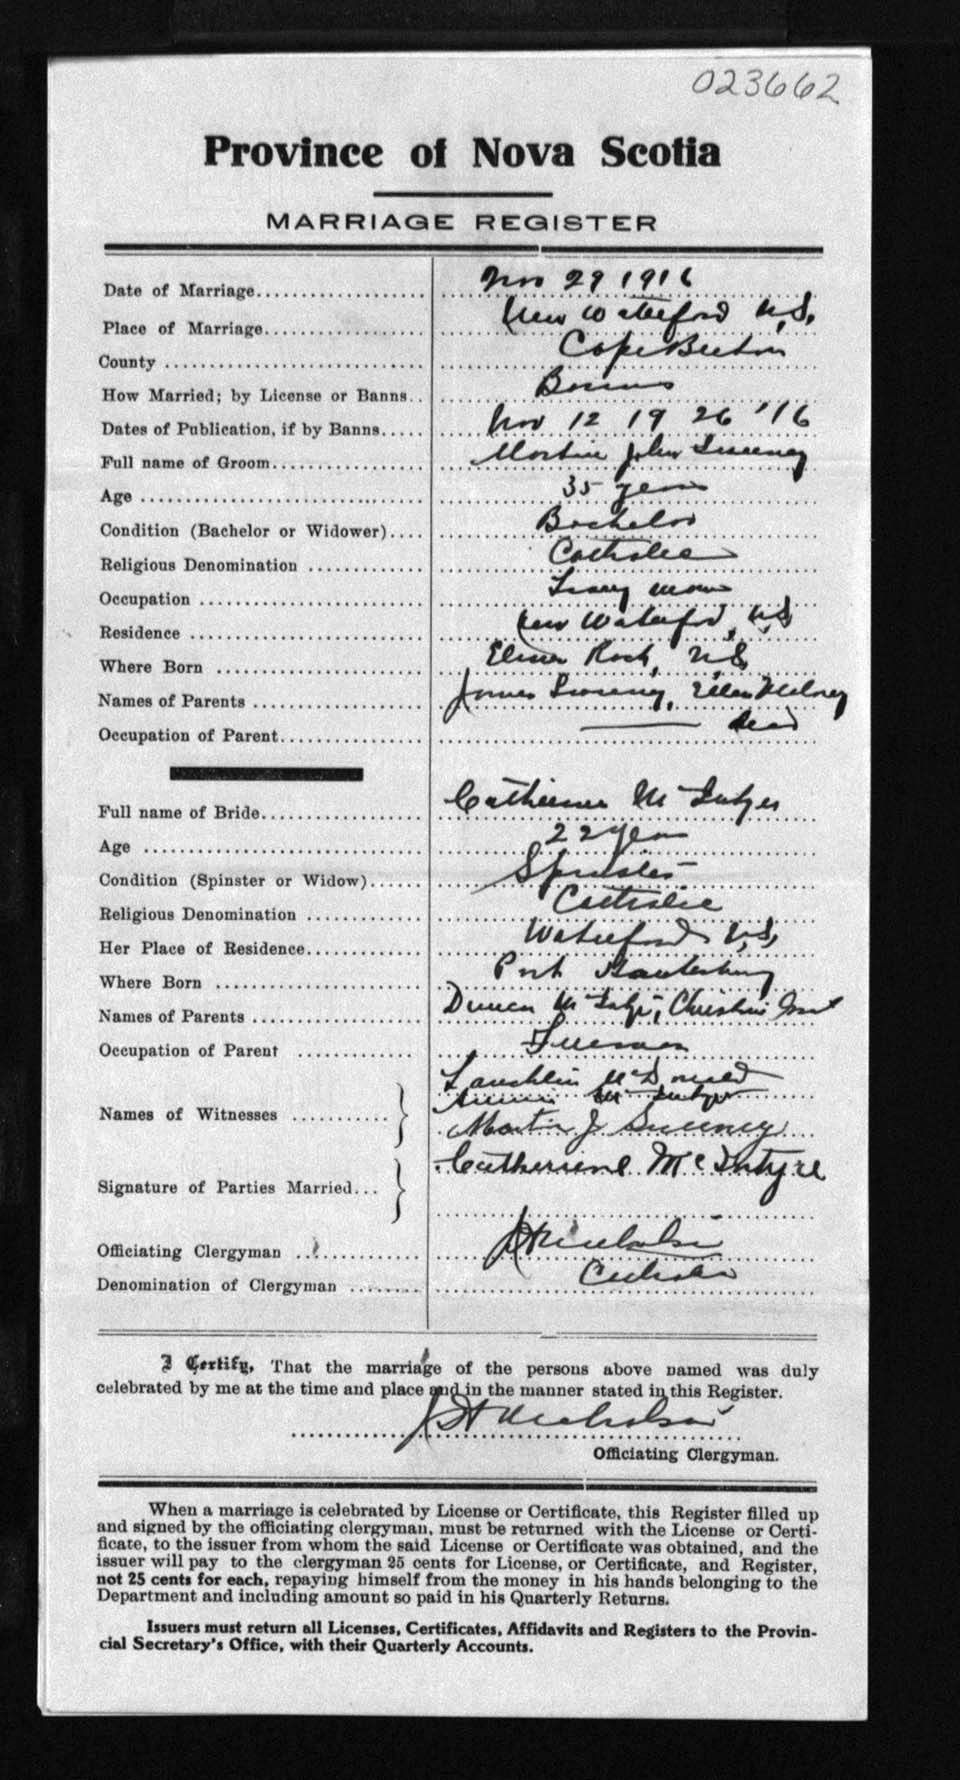 023662
Province of Nova Scotia
MARRIAGE REGISTER
Date of Marriage.................. Nov 29 1916
Place of Marriage................. New Waterford N.S.
County ........................... Cape Breton
How Married; by License or Banns.. Banns
Dates of Publication, if by Banns..... Nov 12 19 26 '16
Full name of Groom................ John Sweeney
Age .............................. 35 years
Condition (Bachelor or Widower).... Bachelor
Religious Denomination ............ Catholic
Occupation .......................
Residence ........................ New Waterford, N.S.
Where Born ....................... Rock, N.S.
Names of Parents ................. James Sweeney, Ellen
Occupation of Parent.............. dead
Full name of Bride................ Catherine McIntyre
Age .............................. 22 years
Condition (Spinster or Widow)...... Spinster
Religious Denomination ............ Catholic
Her Place of Residence............ Waterford N.S.
Where Born ....................... Port Hawkesbury
Names of Parents ................. Duncan McIntyre, Christina
Occupation of Parent .............
Names of Witnesses ........... } Lauchlin McDonald
Annie McIntyre
Martin J Sweeney
Signature of Parties Married... } Catherine McIntyre
Officiating Clergyman ............ JH Nicholson
Denomination of Clergyman ........ Catholic
I Certify, That the marriage of the persons above named was duly
celebrated by me at the time and place and in the manner stated in this Register.
JH Nicholson
Officiating Clergyman.
When a marriage is celebrated by License or Certificate, this Register filled up
and signed by the officiating clergyman, must be returned with the License or Certi-
ficate, to the issuer from whom the said License or Certificate was obtained, and the
issuer will pay to the clergyman 25 cents for License, or Certificate, and Register,
not 25 cents for each, repaying himself from the money in his hands belonging to the
Department and including amount so paid in his Quarterly Returns.
Issuers must return all Licenses, Certificates, Affidavits and Registers to the Provin-
cial Secretary's Office, with their Quarterly Accounts.